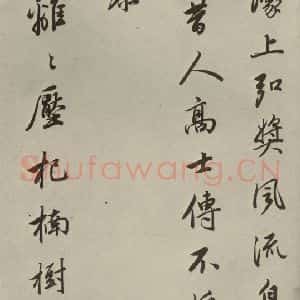 上弘獎風流
昔人高士傳不
離〻壓杞楠樹
Shufawang.CN